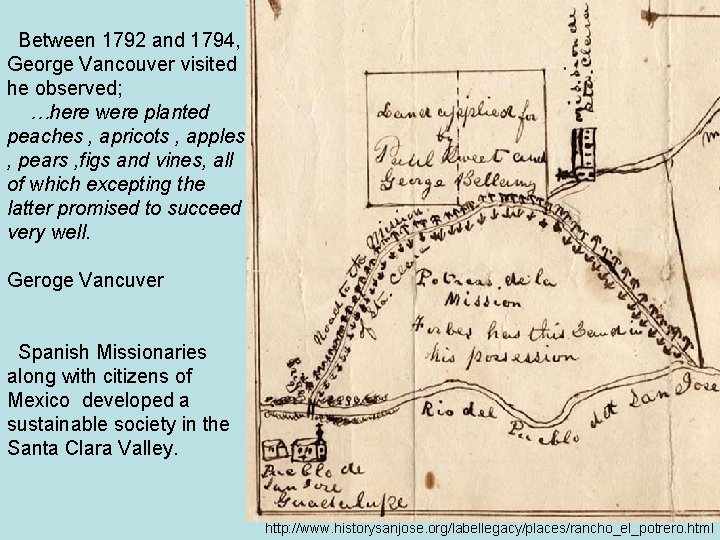 Between 1792 and 1794,
George Vancouver visited
he observed;
…here were planted
peaches , apricots , apples
, pears , figs and vines, all
of which excepting the
latter promised to succeed
very well.
Geroge Vancuver
Spanish Missionaries
along with citizens of
Mexico developed a
sustainable society in the
Santa Clara Valley.
Mission de
Sta. Clara
Land applied for
by
Paul Sweet and
George Bellamy
Road to the Mission
of Sta. Clara
Potrero de la
Mission
Forbes has this Land in
his possession
Rio del Pueblo de San Jose
Pueblo de
San Jose
Guadalupe
http://www.historysanjose.org/labellegacy/places/rancho_el_potrero.html